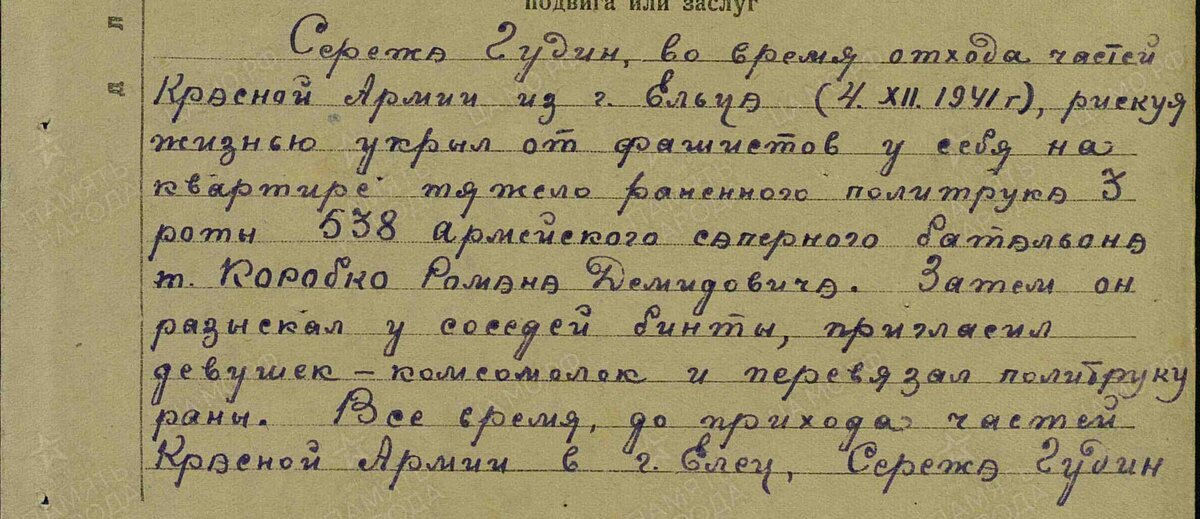 подвига или заслуг
Сережа Гудин, во время отхода частей
Красной Армии из г. Ельца (4. XII. 1941 г), рискуя
жизнью укрыл от фашистов у себя на
квартире тяжело раненного политрука 3
роты 538 армейского саперного батальона
т. Коробко Романа Демидовича. Затем он
разыскал у соседей бинты, пригласил
девушек – комсомолок и перевязал политруку
раны. Все время, до прихода частей
Красной Армии в г. Елец, Сережа Гудин
ПАМЯТЬ НАРОДА
ЦАМО.РФ